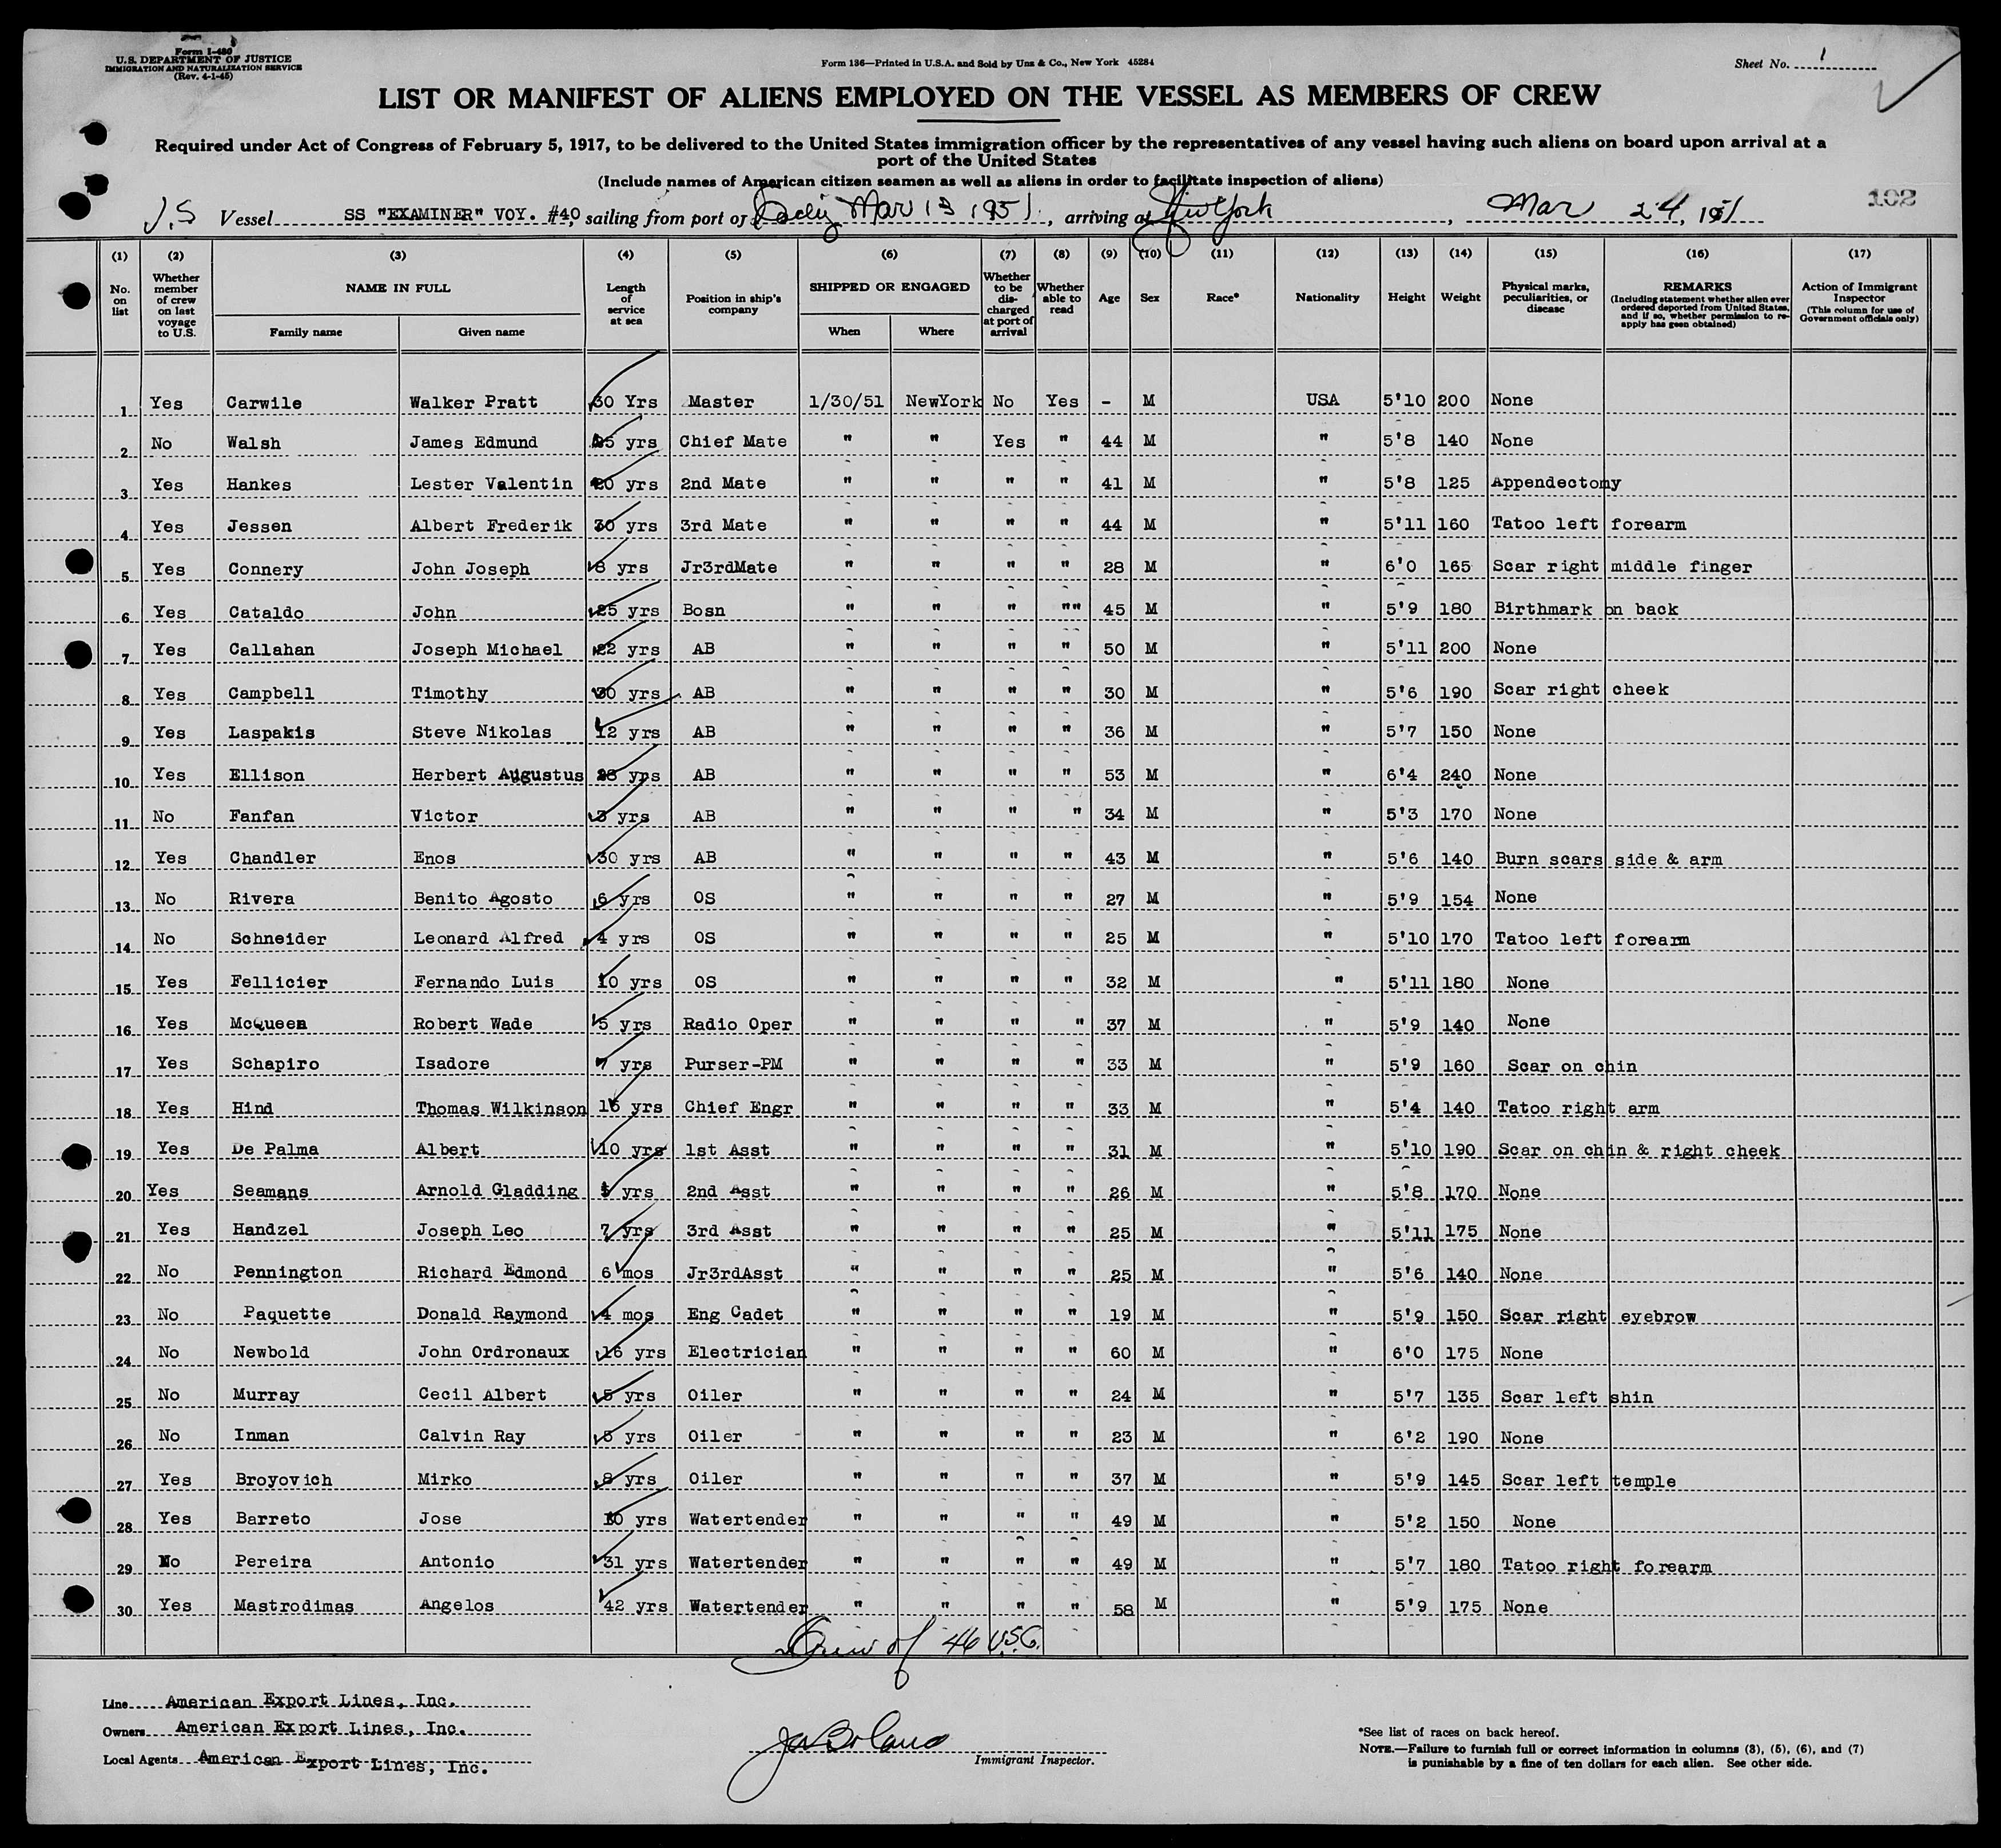 Form I-480
U.S. DEPARTMENT OF JUSTICE
IMMIGRATION AND NATURALIZATION SERVICE
(Rev. 4-1-45)
Form 136—Printed in U.S.A. and Sold by Unz & Co., New York 45284
Sheet No. 1
LIST OR MANIFEST OF ALIENS EMPLOYED ON THE VESSEL AS MEMBERS OF CREW
Required under Act of Congress of February 5, 1917, to be delivered to the United States immigration officer by the representatives of any vessel having such aliens on board upon arrival at a
port of the United States
(Include names of American citizen seamen as well as aliens in order to facilitate inspection of aliens)
102
Vessel SS "EXAMINER" VOY. #40, sailing from port of Cadiz Mar 13 1951, arriving at New York, Mar 24, 1951
(1) (2) (3) (4) (5) (6) (7) (8) (9) (10) (11) (12) (13) (14) (15) (16) (17)
No. on list
Whether member of crew on last voyage to U.S.
NAME IN FULL
Family name Given name
Length of service at sea
Position in ship's company
SHIPPED OR ENGAGED
When Where
Whether to be discharged at port of arrival
Whether able to read
Age Sex Race* Nationality Height Weight
Physical marks, peculiarities, or disease
REMARKS
(Including statement whether alien ever ordered deported from United States, and if so, whether permission to re-apply has geen obtained)
Action of Immigrant Inspector
(This column for use of Government officials only)
1 Yes Carwile Walker Pratt 30 Yrs Master 1/30/51 NewYork No Yes - M USA 5'10 200 None
2 No Walsh James Edmund 25 yrs Chief Mate " " Yes " 44 M " 5'8 140 None
3 Yes Hankes Lester Valentin 20 yrs 2nd Mate " " " " 41 M " 5'8 125 Appendectomy
4 Yes Jessen Albert Frederik 30 yrs 3rd Mate " " " " 44 M " 5'11 160 Tatoo left forearm
5 Yes Connery John Joseph 8 yrs Jr3rdMate " " " " 28 M " 6'0 165 Scar right middle finger
6 Yes Cataldo John 25 yrs Bosn " " " "" 45 M " 5'9 180 Birthmark on back
7 Yes Callahan Joseph Michael 22 yrs AB " " " " 50 M " 5'11 200 None
8 Yes Campbell Timothy 30 yrs AB " " " " 30 M " 5'6 190 Scar right cheek
9 Yes Laspakis Steve Nikolas 12 yrs AB " " " " 36 M " 5'7 150 None
10 Yes Ellison Herbert Augustus yrs AB " " " " 53 M " 6'4 240 None
11 No Fanfan Victor 3 yrs AB " " " " 34 M " 5'3 170 None
12 Yes Chandler Enos 30 yrs AB " " " " 43 M " 5'6 140 Burn scars side & arm
13 No Rivera Benito Agosto 6 yrs OS " " " " 27 M " 5'9 154 None
14 No Schneider Leonard Alfred 4 yrs OS " " " " 25 M " 5'10 170 Tatoo left forearm
15 Yes Fellicier Fernando Luis 10 yrs OS " " " " 32 M " 5'11 180 None
16 Yes McQueen Robert Wade 5 yrs Radio Oper " " " " 37 M " 5'9 140 None
17 Yes Schapiro Isadore 7 yrs Purser-PM " " " " 33 M " 5'9 160 Scar on chin
18 Yes Hind Thomas Wilkinson 16 yrs Chief Engr " " " " 33 M " 5'4 140 Tatoo right arm
19 Yes De Palma Albert 10 yrs 1st Asst " " " " 31 M " 5'10 190 Scar on chin & right cheek
20 Yes Seamans Arnold Gladding yrs 2nd Asst " " " " 26 M " 5'8 170 None
21 Yes Handzel Joseph Leo 7 yrs 3rd Asst " " " " 25 M " 5'11 175 None
22 No Pennington Richard Edmond 6 mos Jr3rdAsst " " " " 25 M " 5'6 140 None
23 No Paquette Donald Raymond 4 mos Eng Cadet " " " " 19 M " 5'9 150 Scar right eyebrow
24 No Newbold John Ordronaux 16 yrs Electrician " " " " 60 M " 6'0 175 None
25 No Murray Cecil Albert 5 yrs Oiler " " " " 24 M " 5'7 135 Scar left shin
26 No Inman Calvin Ray 5 yrs Oiler " " " " 23 M " 6'2 190 None
27 Yes Broyovich Mirko 8 yrs Oiler " " " " 37 M " 5'9 145 Scar left temple
28 Yes Barreto Jose 10 yrs Watertender " " " " 49 M " 5'2 150 None
29 No Pereira Antonio 31 yrs Watertender " " " " 49 M " 5'7 180 Tatoo right forearm
30 Yes Mastrodimas Angelos 42 yrs Watertender " " " " 58 M " 5'9 175 None
Crew of 46 USC.
Line American Export Lines, Inc.
Owners American Export Lines, Inc.
Local Agents American Export Lines, Inc.
Immigrant Inspector.
*See list of races on back hereof.
NOTE.—Failure to furnish full or correct information in columns (3), (5), (6), and (7)
is punishable by a fine of ten dollars for each alien. See other side.